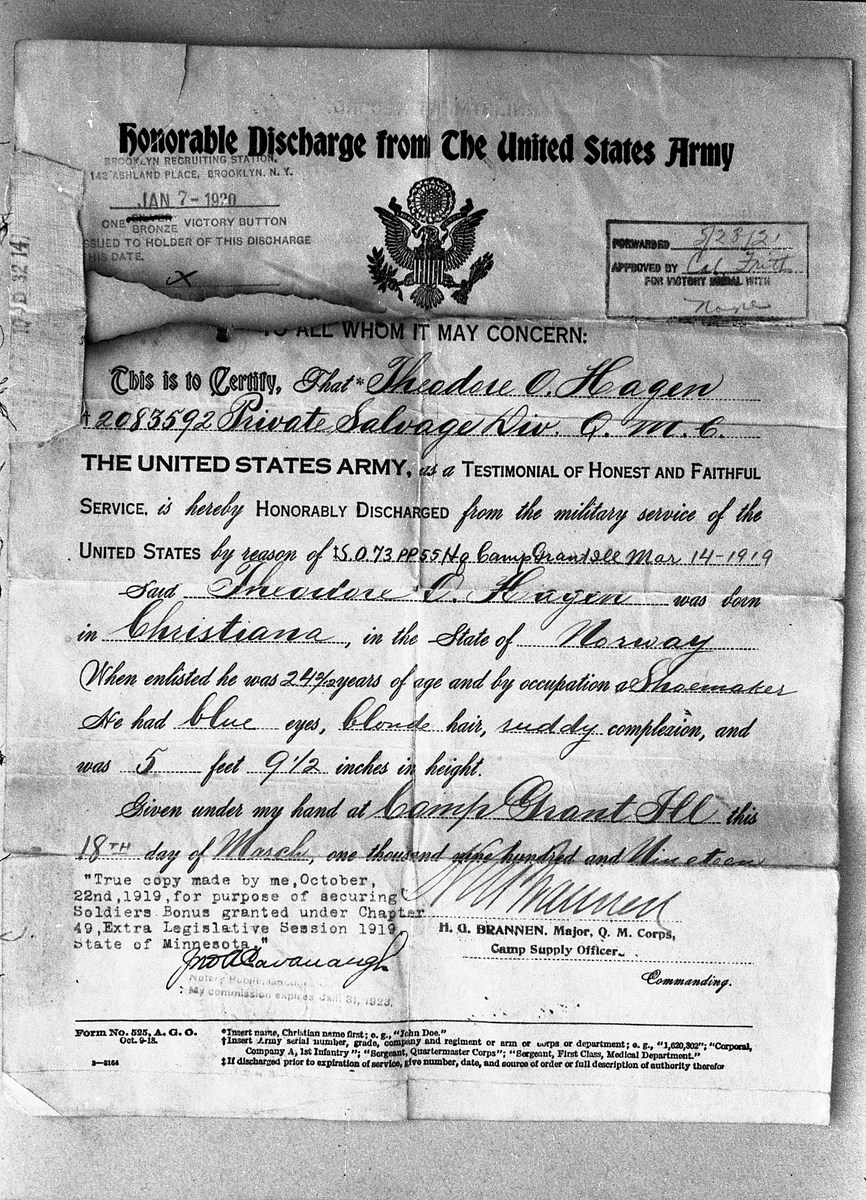 Honorable Discharge from The United States Army
BROOKLYN RECRUITING STATION,
142 ASHLAND PLACE, BROOKLYN, N. Y.
JAN 7 - 1920
ONE SILVER VICTORY BUTTON
BRONZE
SSUED TO HOLDER OF THIS DISCHARGE
HIS DATE.
X
FORWARDED 5/28/21
APPROVED BY
FOR VICTORY MEDAL WITH
TO ALL WHOM IT MAY CONCERN:
This is to Certify, That* Theodore O. Hagen
† 2083592 Private Salvage Div. Q. M. C.
THE UNITED STATES ARMY, as a TESTIMONIAL OF HONEST AND FAITHFUL
SERVICE, is hereby HONORABLY DISCHARGED from the military service of the
UNITED STATES by reason of ‡ S.O. 73 PP 55 Hq Camp Grant Ill Mar 14-1919
Said Theodore O. Hagen was born
in Christiana, in the State of Norway
When enlisted he was 24 5/12 years of age and by occupation a Shoemaker
He had blue eyes, blonde hair, ruddy complexion, and
was 5 feet 9 1/2 inches in height.
Given under my hand at Camp Grant Ill this
18TH day of March, one thousand nine hundred and Nineteen
"True copy made by me, October,
22nd, 1919, for purpose of securing
Soldiers Bonus granted under Chapter
49, Extra Legislative Session 1919
State of Minnesota."
Jno A Cavanaugh
Notary Public,
My commission expires Jan. 31, 1923.
H G Brannen
H. G. BRANNEN, Major, Q. M. Corps,
Camp Supply Officer.
Commanding.
Form No. 525, A. G. O.
Oct. 9-18.
3—3164
*Insert name, Christian name first; e. g., "John Doe."
†Insert Army serial number, grade, company and regiment or arm or corps or department; e. g., "1,620,302"; "Corporal,
Company A, 1st Infantry"; "Sergeant, Quartermaster Corps"; "Sergeant, First Class, Medical Department."
‡If discharged prior to expiration of service, give number, date, and source of order or full description of authority therefor